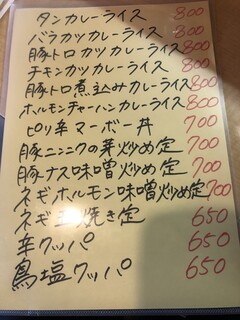 タンカレーライス 800
バラカツカレーライス 800
豚トロカツカレーライス 800
チキンカツカレーライス 800
豚トロ煮込みカレーライス 800
ホルモンチャーハンカレーライス 800
ピリ辛マーボー丼 700
豚ニンニクの芽炒め定 700
豚ナス味噌炒め定 700
ネギホルモン味噌炒め定 700
ネギ 焼き定 650
辛クッパ 650
鳥塩クッパ 650